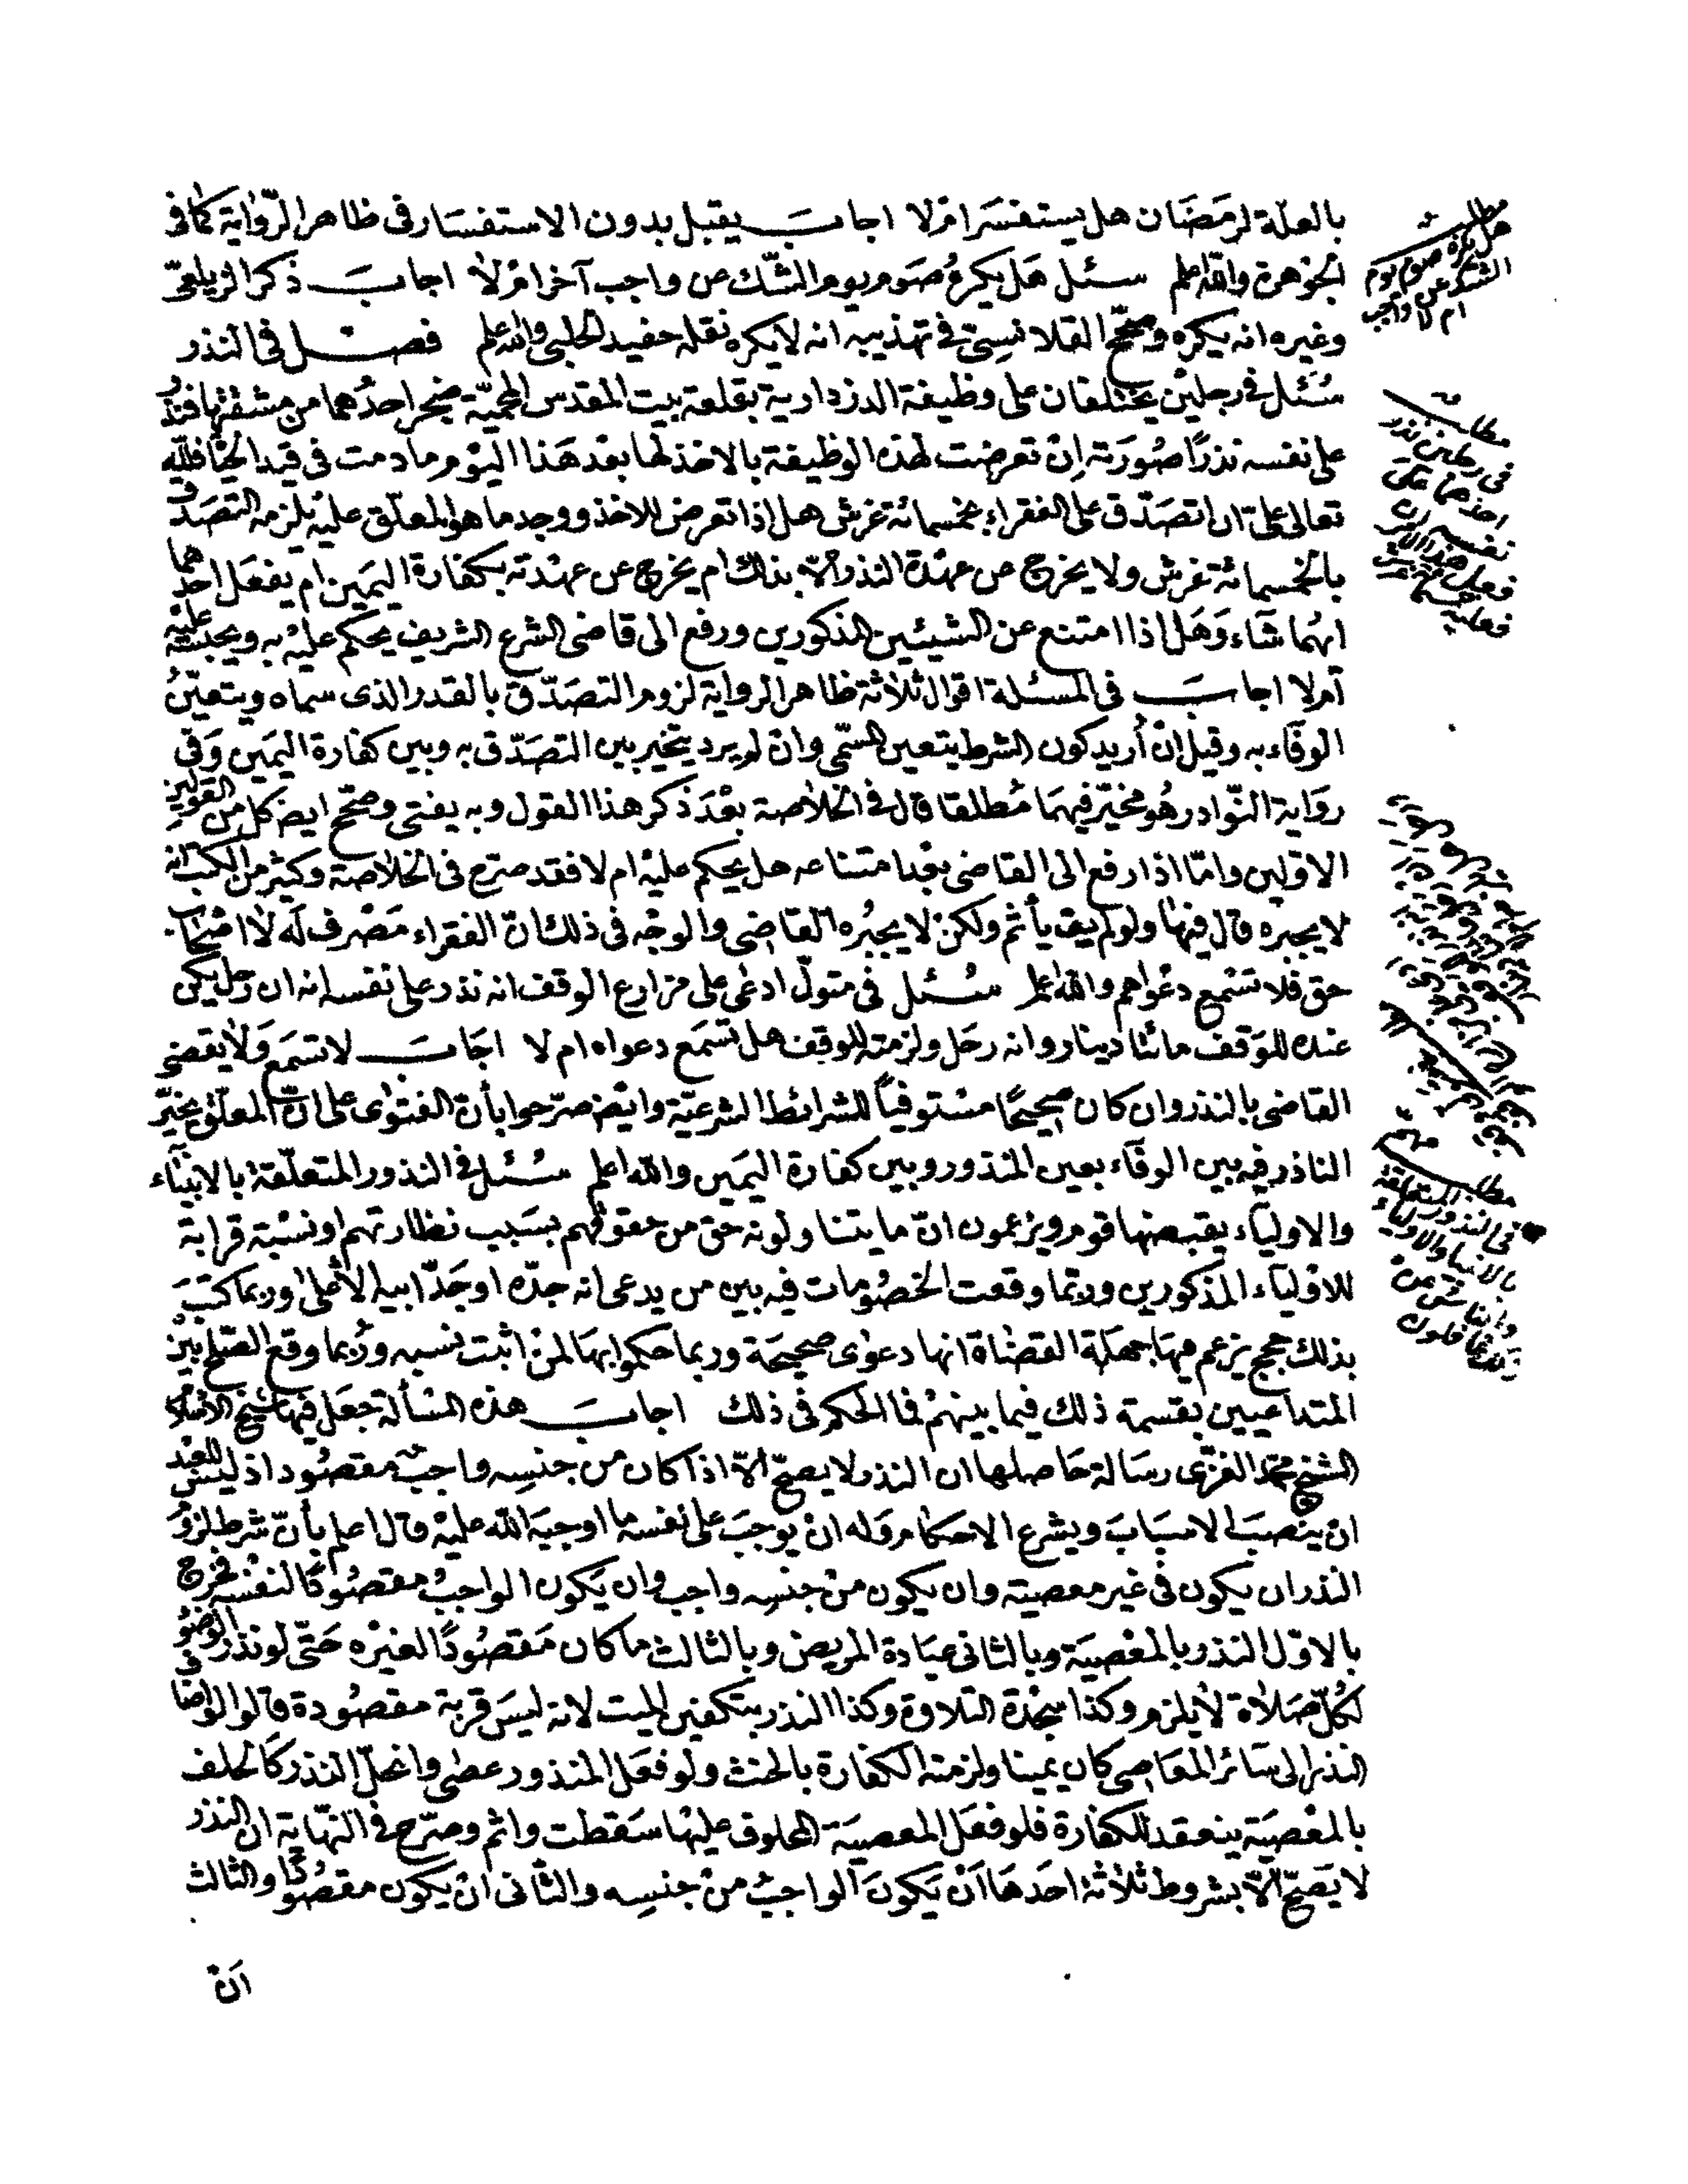 بالعلة لرمضان هل يستفسر ام لا اجاب يقبل بدون الاستفسار فى ظاهر الرواية كما فى
الجوهرة والله اعلم سئل هل يكره صوم يوم الشك عن واجب آخر ام لا اجاب ذكر الزيلعى
وغيره انه يكره وصحح القلانسى فى تهذيبه انه لا يكره نقله حفيد الحلبى والله اعلم فصل فى النذر
سئل فى رجلين يختلفان على وظيفة الدزدارية بقلعة بيت المقدس المحمية ضجر احدهما من مشقتها فنذر
على نفسه نذرًا صورته ان تعرضت لهذه الوظيفة بالاخذ لها بعد هذا اليوم ما دمت فى قيد الحيا فلله
تعالى على ان اتصدق على الفقراء بخمسمائة غرش هل اذا تعرض للاخذ ووجد ما هو المعلق عليه يلزمه التصدق
بالخمسمائة غرش ولا يخرج عن عهدة النذر الا بذلك ام يخرج عن عهدته بكفارة اليمين ام يفعل احدهما
ايهما شاء وهل اذا امتنع عن الشيئين المذكورين ورفع الى قاضى الشرع الشريف يحكم عليه به ويجب عليه
أم لا اجاب فى المسئلة اقوال ثلاثة ظاهر الرواية لزوم التصدق بالقدر الذى سماه ويتعين
الوفاء به وقيل ان أريد كون الشرط يتعين المسمى وان لم يرد يتخير بين التصدق به وبين كفارة اليمين وفى
رواية النوادر هو مخير فيهما مطلقا قال فى الخلاصة بعد ذكر هذا القول وبه يفتى وصحح ايض كل من القولين
الاولين واما اذا رفع الى القاضى بعد امتناعه هل يحكم عليه ام لا فقد صرح فى الخلاصة وكثير من الكتب انه
لا يجبره قال فيها ولو لم يف يأثم ولكن لا يجبره القاضى والوجه فى ذلك ان الفقراء مصرف له لا اصحاب
حق فلا تسمع دعواهم والله اعلم سئل فى متول ادعى على مزارع الوقف انه نذر على نفسه انه ان رحل يكن
عنده للوقف مائتا دينار وانه رحل ولزمته للوقف هل تسمع دعواه ام لا اجاب لا تسمع ولا يقضى
القاضى بالنذر وان كان صحيحًا مستوفيًا للشرائط الشرعية وايضا صرحوا بأن الفتوى على ان المعلق يخير
الناذر فيه بين الوفاء بعين المنذور وبين كفارة اليمين والله اعلم سئل فى النذور المتعلقة بالانبياء
والاولياء يقبضها قوم ويزعمون ان ما يتناولونه حق من حقوقهم بسبب نظارتهم او نسبة قرابة
للاولياء المذكورين وربما وقعت الخصومات فيه بين من يدعى انه جده او جد ابيه الاعلى وربما كتب
بذلك حجج يزعم فيها جهلة القضاة انها دعوى صحيحة وربما حكموا بها لمن اثبت نسبه وربما وقع الصلح بين
المتداعيين بقسمة ذلك فيما بينهم فما الحكم فى ذلك اجاب هذه المسألة جعل فيها شيخ الاسلام
الشيخ محمد الغزى رسالة حاصلها ان النذر لا يصح الا اذا كان من جنسه واجب مقصود اذ ليس للعبد
ان ينصب الاسباب ويشرع الاحكام وله ان يوجب على نفسه ما اوجبه الله عليه قال اعلم بأن شرط لزوم
النذر ان يكون فى غير معصية وان يكون من جنسه واجب وان يكون الواجب مقصودًا لنفسه فخرج
بالاول النذر بالمعصية وبالثانى عيادة المريض وبالثالث ما كان مقصودًا لغيره حتى لو نذر الوضو
لكل صلاة لا يلزم وكذا سجدة التلاوة وكذا النذر بتكفين الميت لانه ليس قربة مقصودة قالوا لو اضاف
النذر الى سائر المعاصى كان يمينا ولزمته الكفارة بالحنث ولو فعل المنذور عصى وانحل النذر كالحلف
بالمعصية ينعقد للكفارة فلو فعل المعصية المحلوف عليها سقطت واثم وصرح فى النهاية ان النذر
لا يصح الا بشروط ثلاثة احدها أن يكون الواجب من جنسه والثانى ان يكون مقصودًا والثالث
ان
مطلب
هل يكره صوم يوم
الشك عن واجب
ام لا
مطلب
فى رجلين نذر
احدهما على
نفسه ان
مطلب
فى النذور المتعلقة
بالانبيا والاولياء